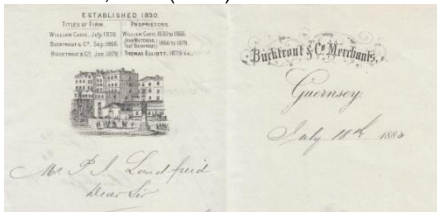 ESTABLISHED 1830.
TITLES OF FIRM.
WILLIAM CARRÉ, July, 1830.
BUCKTROUT & Cº, Sep. 1866.
BUCKTROUT & Cº, Jan. 1879.
PROPRIETORS.
WILLIAM CARRÉ, 1830 to 1866.
1866 to 1879.
THOMAS ELLIOTT, 1879
Bucktrout & Cº Merchants,
Guernsey,
July 18th 1883
Mr P. J. Landfried
Dear Sir